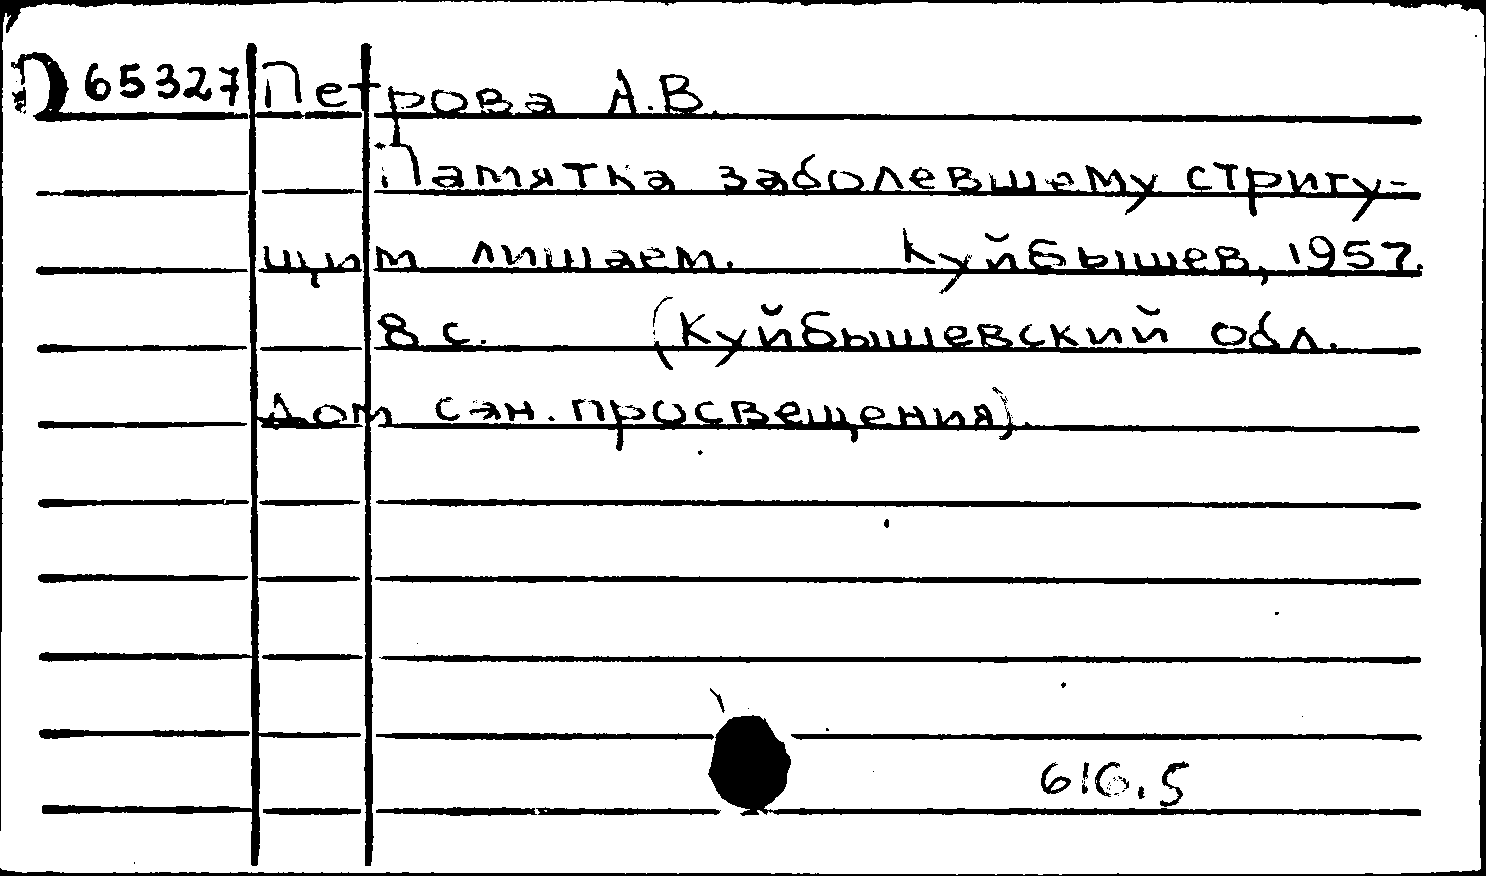 П 65327 Петрова А.В.
Памятка заболевшему стригу-
щим лишаем. Куйбышев, 1957.
8 с. (Куйбышевский обл.
Дом сан. просвещения).
616.5